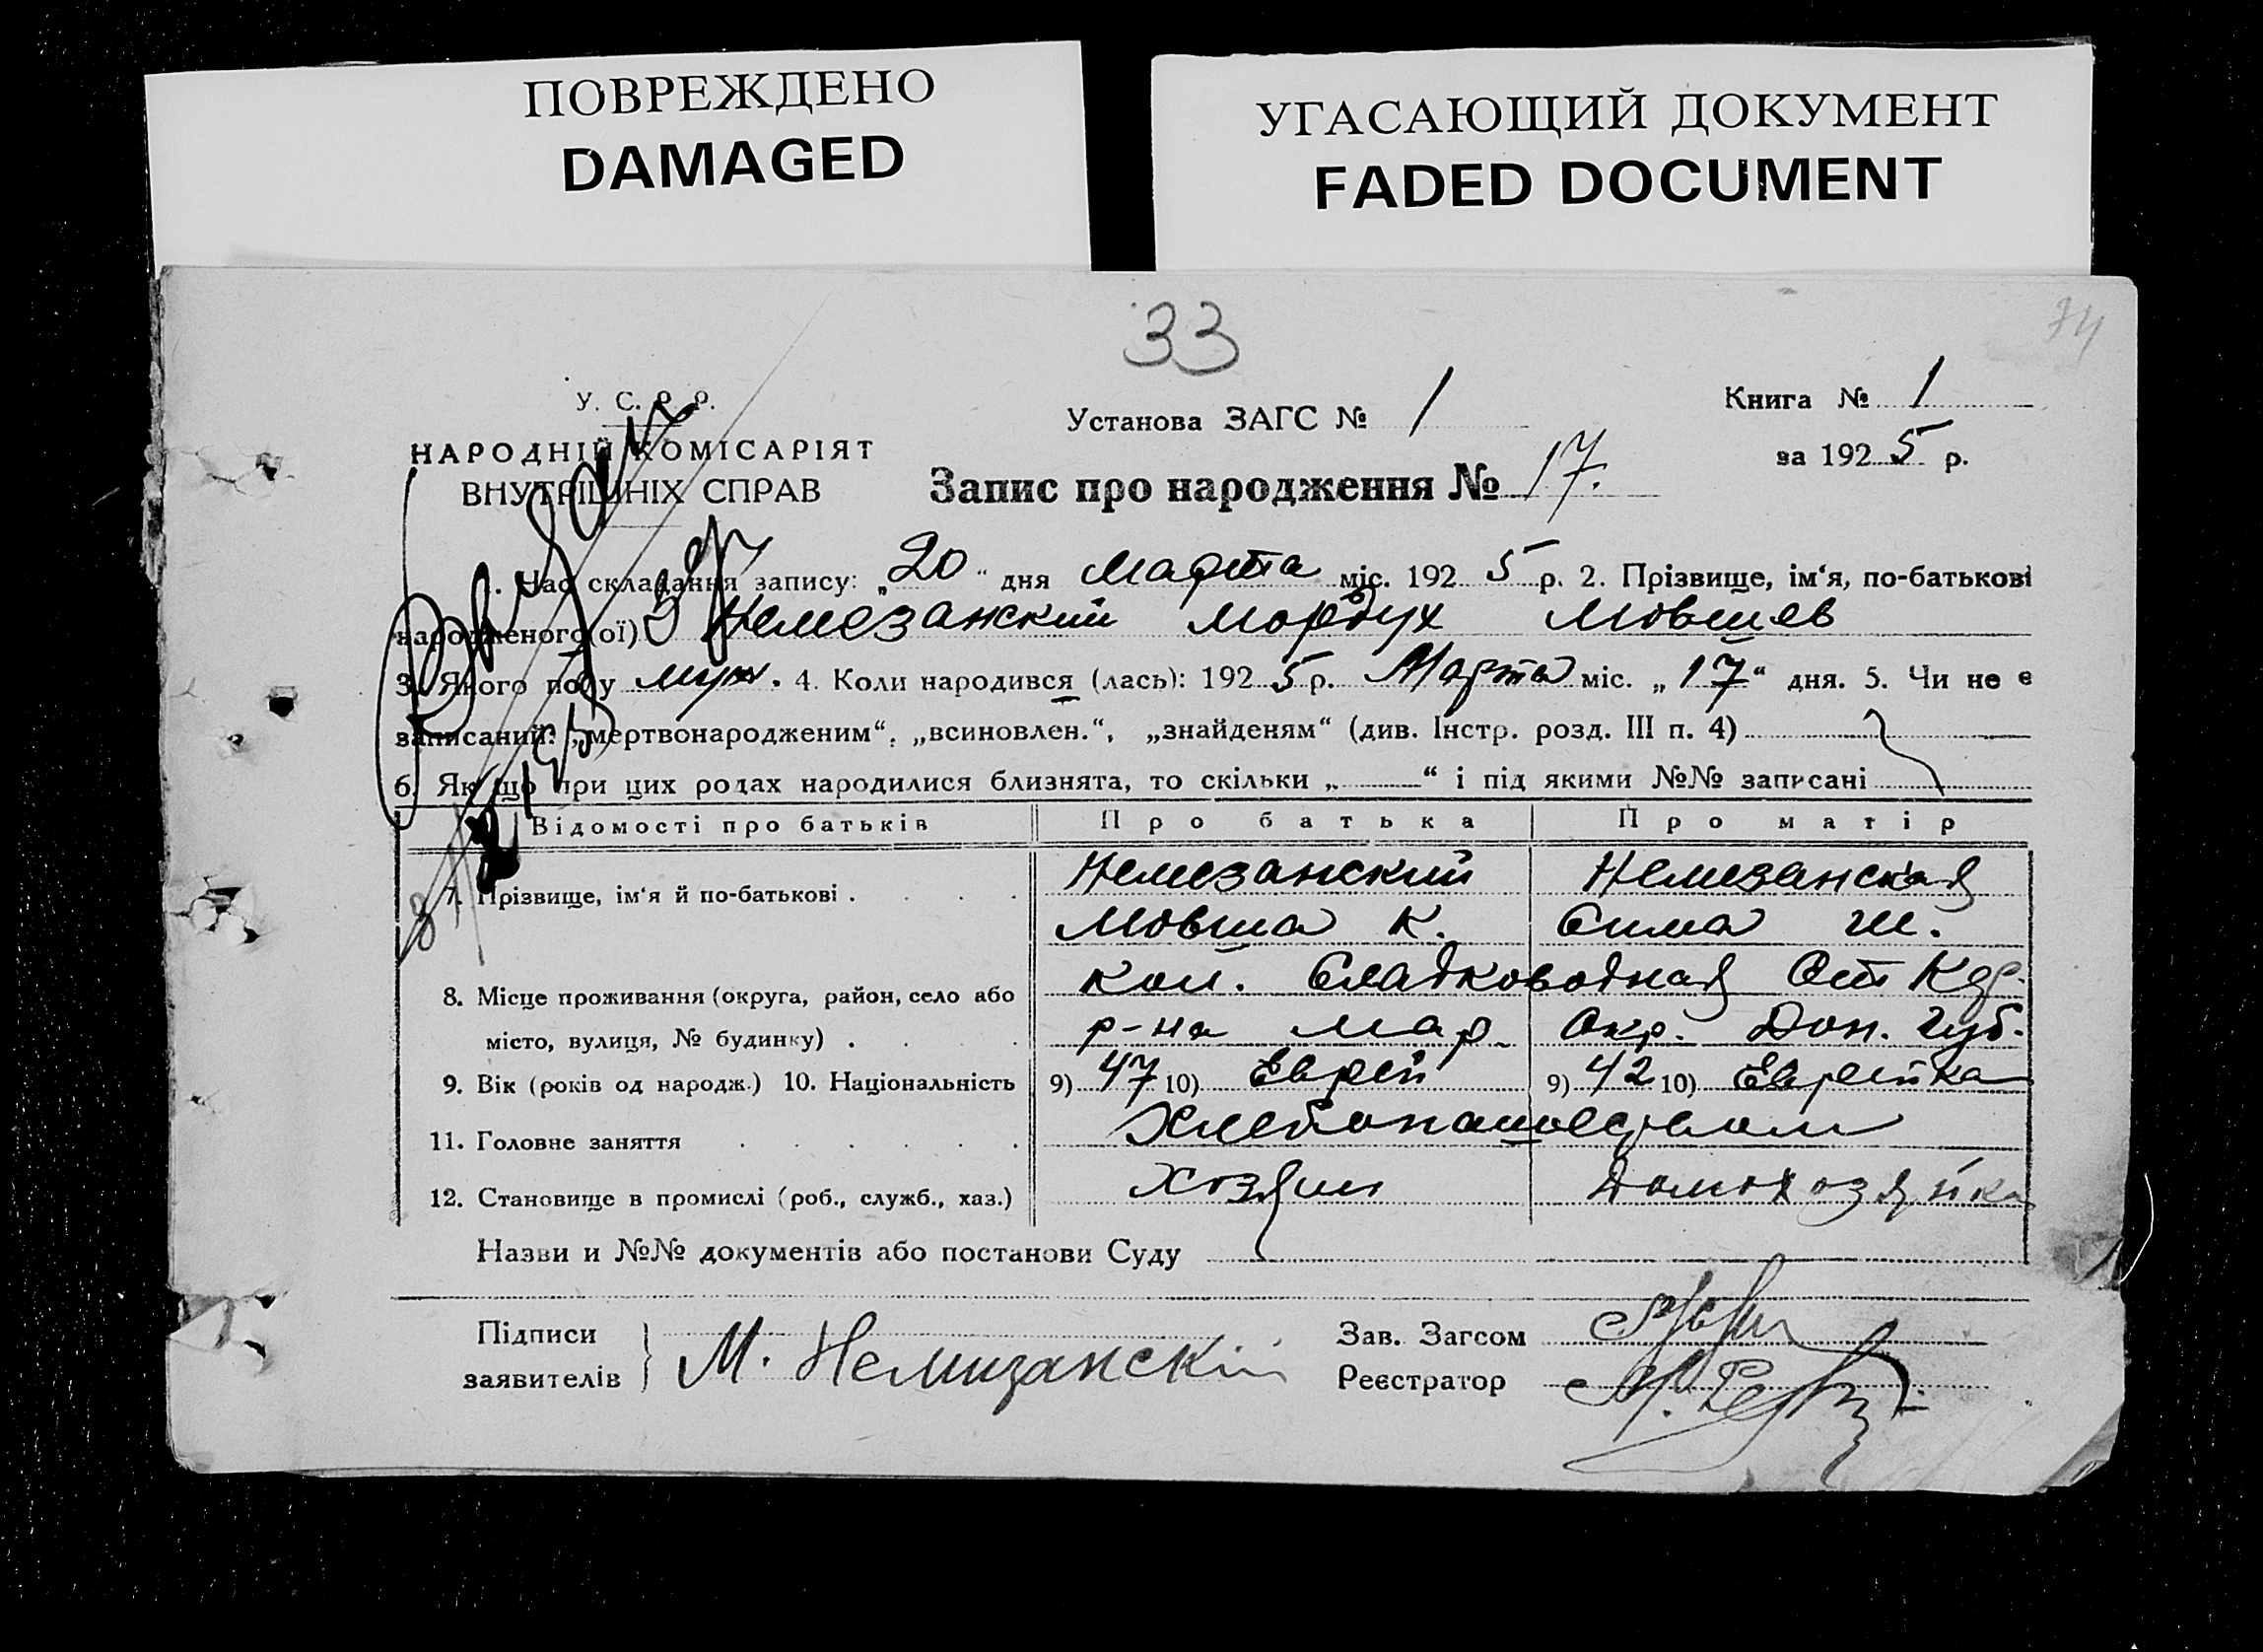 ПОВРЕЖДЕНО
DAMAGED
УГАСАЮЩИЙ ДОКУМЕНТ
FADED DOCUMENT
33
74
У. С. Р. Р.
НАРОДНІЙ КОМІСАРІЯТ
ВНУТРІШНІХ СПРАВ
Установа ЗАГС № 1
Книга № 1
за 1925 р.
Запис про народження № 17.
1. Час складання запису: „20“ дня Марта міс. 1925 р. 2. Прізвище, ім‘я, по-батькові
народженого(ої) Немезанский Мордух Мовшев
3. Якого полу муж. 4. Коли народився (лась): 1925 р. Марта міс. „17“ дня. 5. Чи не є
записаний: „мертвонародженим“, „всиновлен.“, „знайденям“ (див. Інстр. розд. III п. 4)
6. Як що при цих родах народилися близнята, то скільки „ “ і під якими №№ записані
Відомості про батьків Про батька Про матір
7. Прізвище, ім‘я й по-батькові . Немезанский Немезанская
Мовша К. Сима Ш.
8. Місце проживання (округа, район, село або кол. Сладководная Ст Кер.
місто, вулиця, № будинку) . р-на Мар. Окр. Дон. Губ.
9. Вік (років од народж.) 10. Національність 9) 47 10) Еврей 9) 42 10) Еврейка
11. Головне заняття Хлебопашеством
12. Становище в промислі (роб., служб., хаз.) Хозяин Домохозяйка
Назви и №№ документів або постанови Суду
Підписи
заявителів } М. Немизанскій
Зав. Загсом
Реєстратор